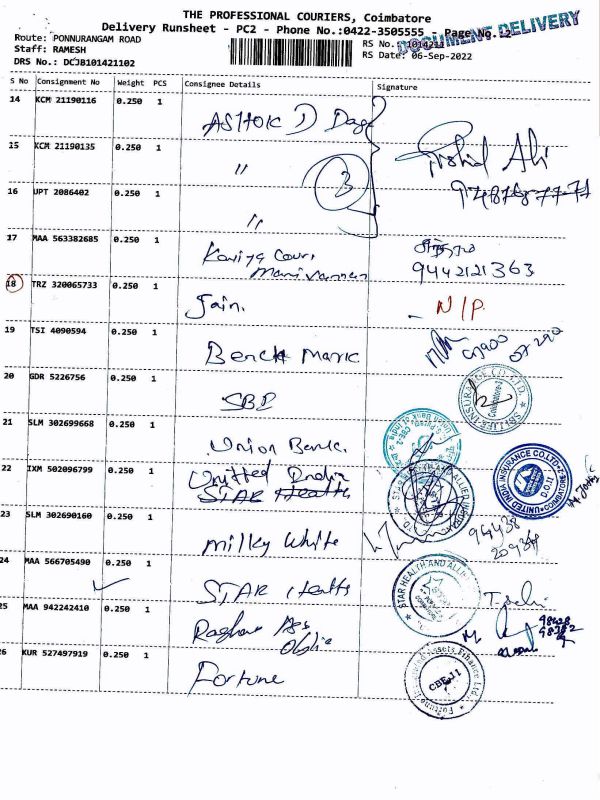 THE PROFESSIONAL COURIERS, Coimbatore
Delivery Runsheet - PC2 - Phone No.:0422-3505555 - Page No. 2
DOCUMENT DELIVERY
Route: PONNURANGAM ROAD
RS No. 1014211
Staff: RAMESH
RS Date: 06-Sep-2022
DRS No.: DCJB101421102
S No Consignment No Weight PCS Consignee Details Signature
14 KCM 21190116 0.250 1 ASHOK D
15 KCM 21190135 0.250 1 "
3
Ali
16 UPT 2086402 0.250 1 "
17 MAA 563382685 0.250 1
9442121363
18 TRZ 320065733 0.250 1 Jain. - N/P.
19 TSI 4090594 0.250 1 Bench Mark
20 GDR 5226756 0.250 1 SBI
SBI LIFE INSURANCE CO. LTD.
Coimbatore-2
21 SLM 302699668 0.250 1 Union Bank.
22 IXM 502096799 0.250 1 United India
STAR Health
UNITED INDIA INSURANCE CO.LTD
COIMBATORE
D.O.II
23 SLM 302690160 0.250 1 Milky White
94438
24 MAA 566705490 0.250 1 STAR Health
STAR HEALTH AND ALLIED
25 MAA 942242410 0.250 1
26 KUR 527497919 0.250 1 Fortune
CBE-11